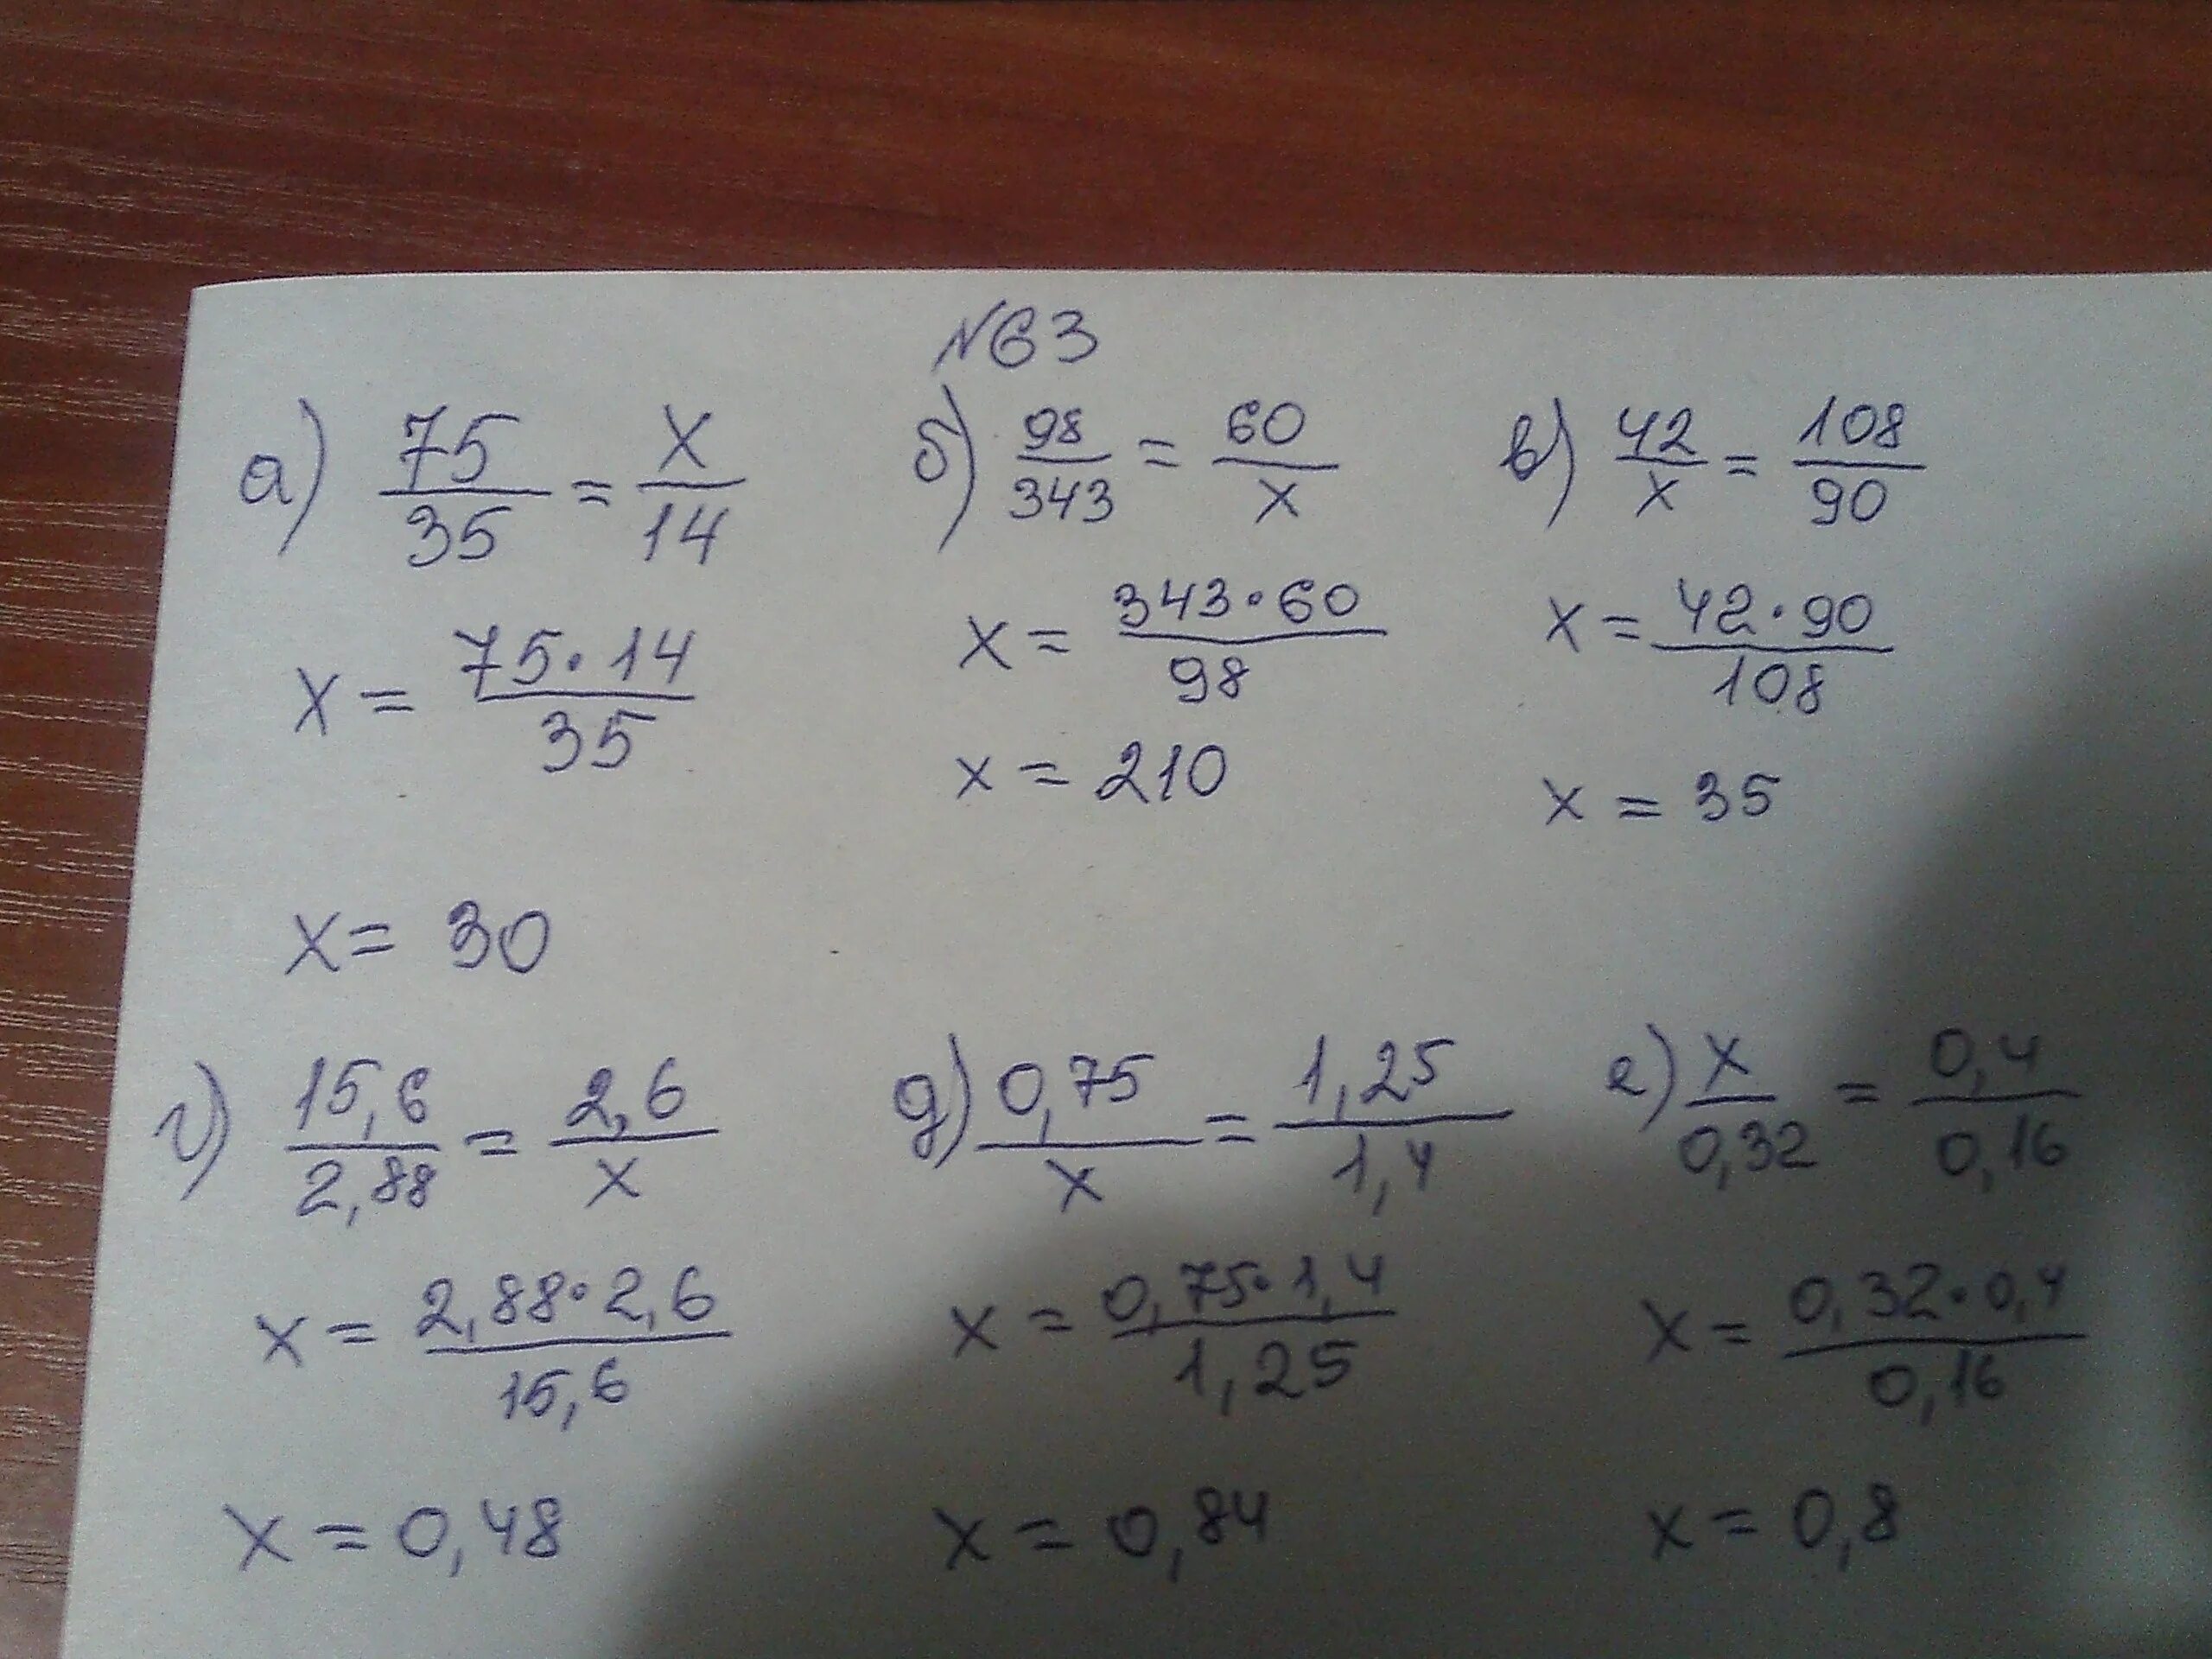 №63
а) 75/35 = x/14
x = 75·14/35
x = 30
б) 98/343 = 60/x
x = 343·60/98
x = 210
в) 42/x = 108/90
x = 42·90/108
x = 35
г) 15,6/2,88 = 2,6/x
x = 2,88·2,6/15,6
x = 0,48
д) 0,75/x = 1,25/1,4
x = 0,75·1,4/1,25
x = 0,84
е) x/0,32 = 0,4/0,16
x = 0,32·0,4/0,16
x = 0,8